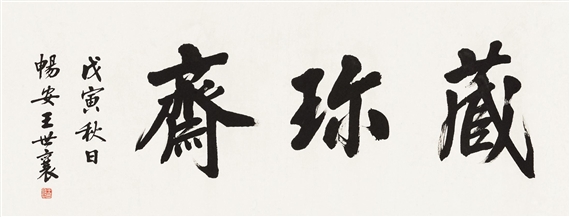 藏珎齋
戊寅秋日
暢安王世襄